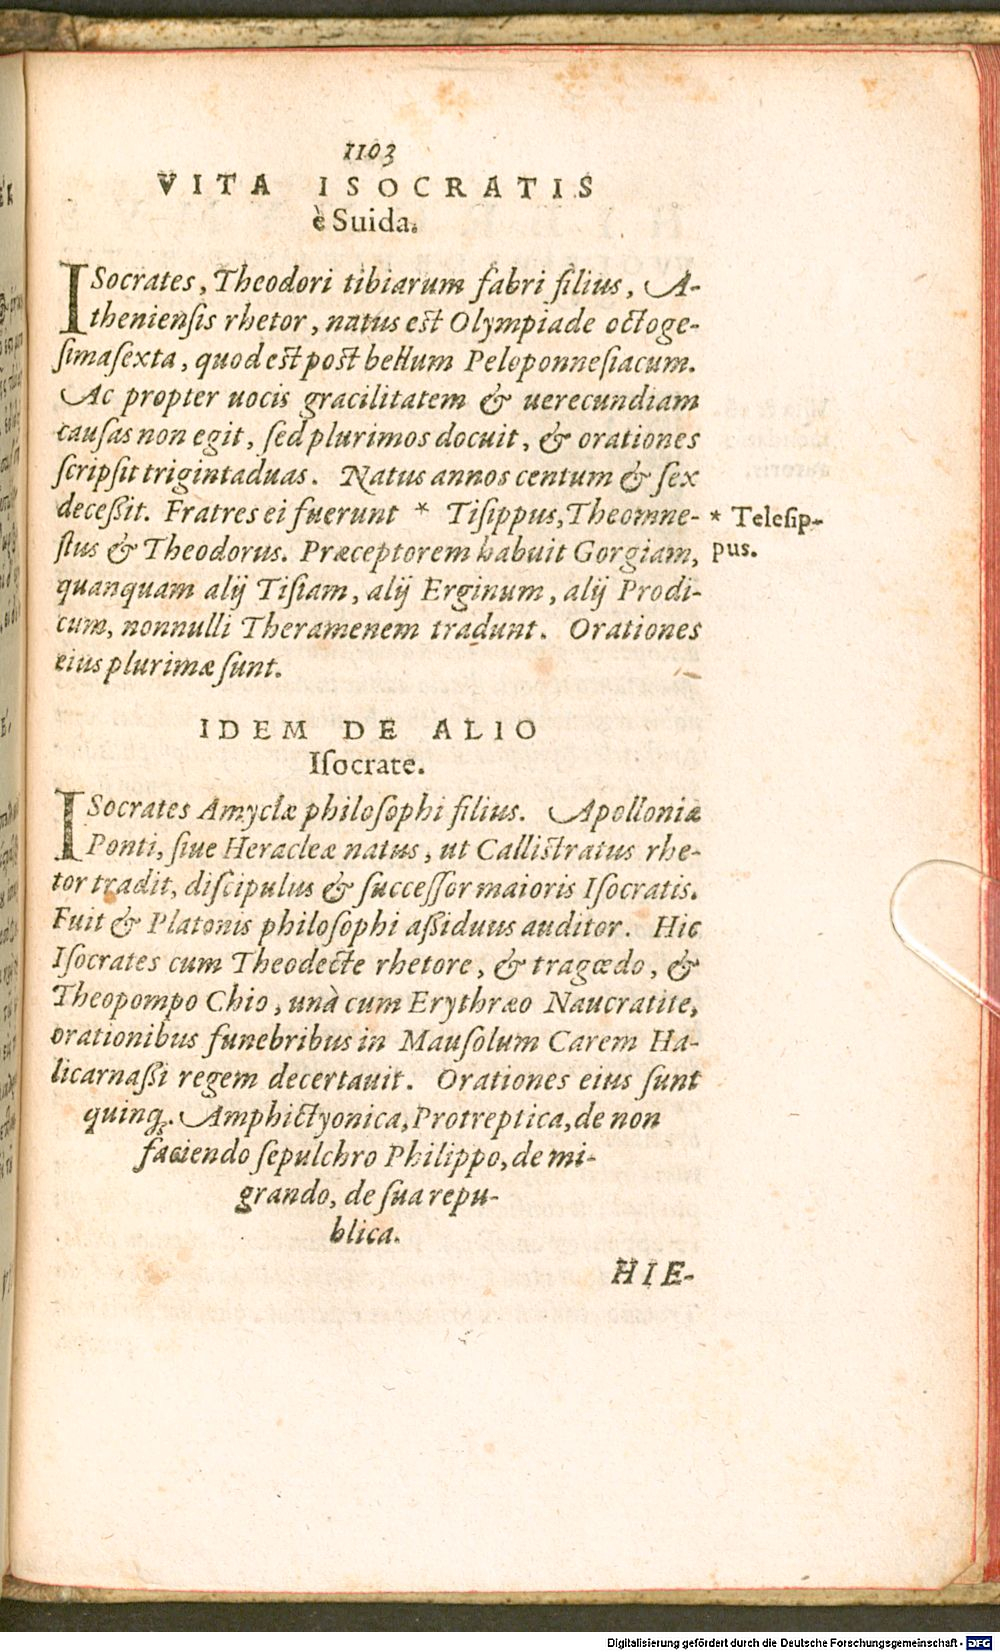 1103
VITA ISOCRATIS
è Suida.
ISocrates, Theodori tibiarum fabri filius, A-
theniensis rhetor, natus est Olympiade octoge-
simasexta, quod est post bellum Peloponnesiacum.
Ac propter uocis gracilitatem & uerecundiam
causas non egit, sed plurimos docuit, & orationes
scripsit trigintaduas. Natus annos centum & sex
decessit. Fratres ei fuerunt * Tisippus, Theomne-
* Telesip-
pus.
stus & Theodorus. Præceptorem habuit Gorgiam,
quanquam alij Tisiam, alij Erginum, alij Prodi-
cum, nonnulli Theramenem tradunt. Orationes
eius plurimæ sunt.
IDEM DE ALIO
Isocrate.
ISocrates Amyclæ philosophi filius. Apolloniæ
Ponti, siue Heracleæ natus, ut Callistratus rhe-
tor tradit, discipulus & successor maioris Isocratis.
Fuit & Platonis philosophi assiduus auditor. Hic
Isocrates cum Theodecte rhetore, & tragœdo, &
Theopompo Chio, unà cum Erythræo Naucratite,
orationibus funebribus in Mausolum Carem Ha-
licarnassi regem decertauit. Orationes eius sunt
quinq;. Amphictyonica, Protreptica, de non
faciendo sepulchro Philippo, de mi-
grando, de sua repu-
blica.
HIE-
Digitalisierung gefördert durch die Deutsche Forschungsgemeinschaft - DFG